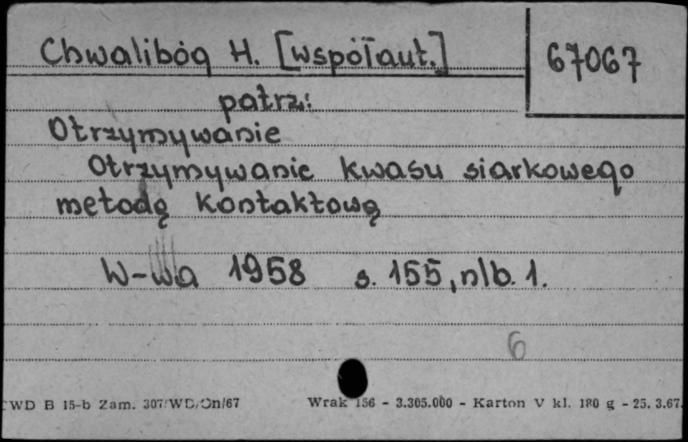 Chwalibóg H. [współaut.]
67067
patrz:
Otrzymywanie
Otrzymywanie kwasu siarkowego
metodą kontaktową
W-wa 1958 s. 155, nlb. 1.
6
WD B 15-b Zam. 307/WD/On/67 Wrak 156 - 3.305.000 - Karton V kl. 180 g - 25. 3.67.